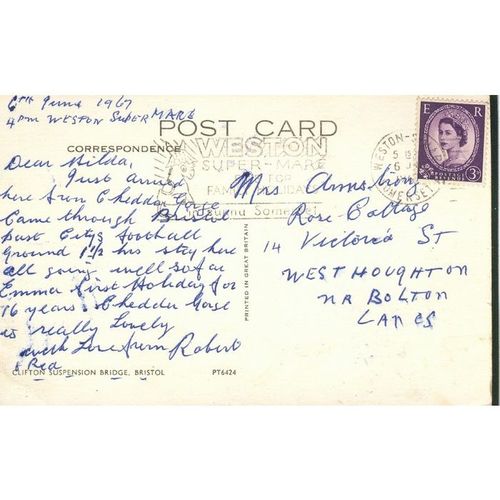 6TH June 1967
4pm WESTON SUPER MARE
POST CARD
CORRESPONDENCE
WESTON
SUPER-MARE
FOR
FAMILY HOLIDAYS
in Sunny Somerset
WESTON-S
SOMERSET
E R
POSTAGE
3D
Dear Hilda,
Just arrived
here from Cheddar Gorge
Came through Bristol
past Citys football
Ground 1 1/2 hrs stay here
all going well so far
Emma first Holiday for
16 years Cheddar Gorge
is really Lovely
with Love from Robert
Mrs Armstrong
Rose Cottage
14 Victoria St
WESTHOUGHTON
NR BOLTON
LANCS
PRINTED IN GREAT BRITAIN
CLIFTON SUSPENSION BRIDGE, BRISTOL
PT6424